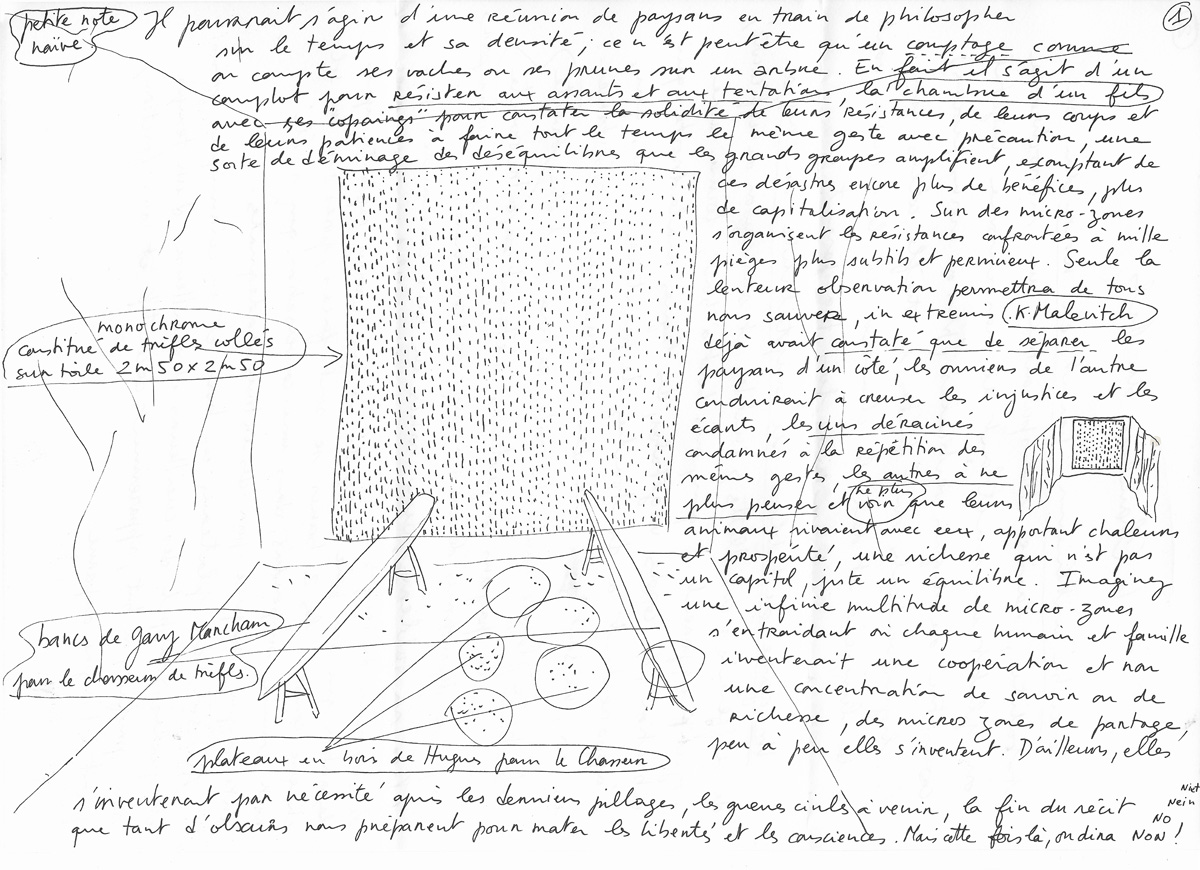 petite note
naïve
1
Il pourrait s'agir d'une réunion de paysans en train de philosopher
sur le temps et sa densité, ce n'est peut être qu'un comptage comme
on compte ses vaches ou ses prunes sur un arbre. En fait il s'agit d'un
complot pour résister aux assauts et aux tentations, la chambre d'un fils
avec ses "copaings" pour constater la solidité de leurs résistances, de leurs corps et
de leurs patiences à faire tout le temps le même geste avec précaution, une
sorte de déminage des déséquilibres que les grands groupes amplifient, escomptant de
ces désastres encore plus de bénéfices, plus
de capitalisation. Sur des micro-zones
s'organisent les résistances confrontées à mille
pièges plus subtils et pernicieux. Seule la
lenteur observation permettra de tous
nous sauver, in extremis K. Malevitch
déjà avait constaté que de séparer les
paysans d'un côté, les ouvriers de l'autre
conduirait à creuser les injustices et les
écarts, les uns déracinés
condamnés à la répétition des
mêmes gestes, les autres à ne
plus penser et ne plus voir que leurs
animaux vivaient avec eux, apportant chaleurs
et prospérité, une richesse qui n'est pas
un capital, juste un équilibre. Imaginez
une infime multitude de micro-zones
s'entraidant où chaque humain et famille
inventerait une coopération et non
une concentration de savoir ou de
richesse, des micros zones de partage,
peu à peu elles s'inventent. D'ailleurs, elles
s'inventeront par nécessité après les derniers pillages, les guerres civiles à venir, la fin du récit
que tant d'obscurs nous préparent pour mater les libertés et les consciences. Mais cette fois là, on dira NON !
Niet
Nein
NO
monochrome
constitué de trèfles collés
sur toile 2m50 x 2m50
bancs de Gary Marcham
pour le chasseur de trèfles.
plateaux en bois de Hugues pour le Chasseur